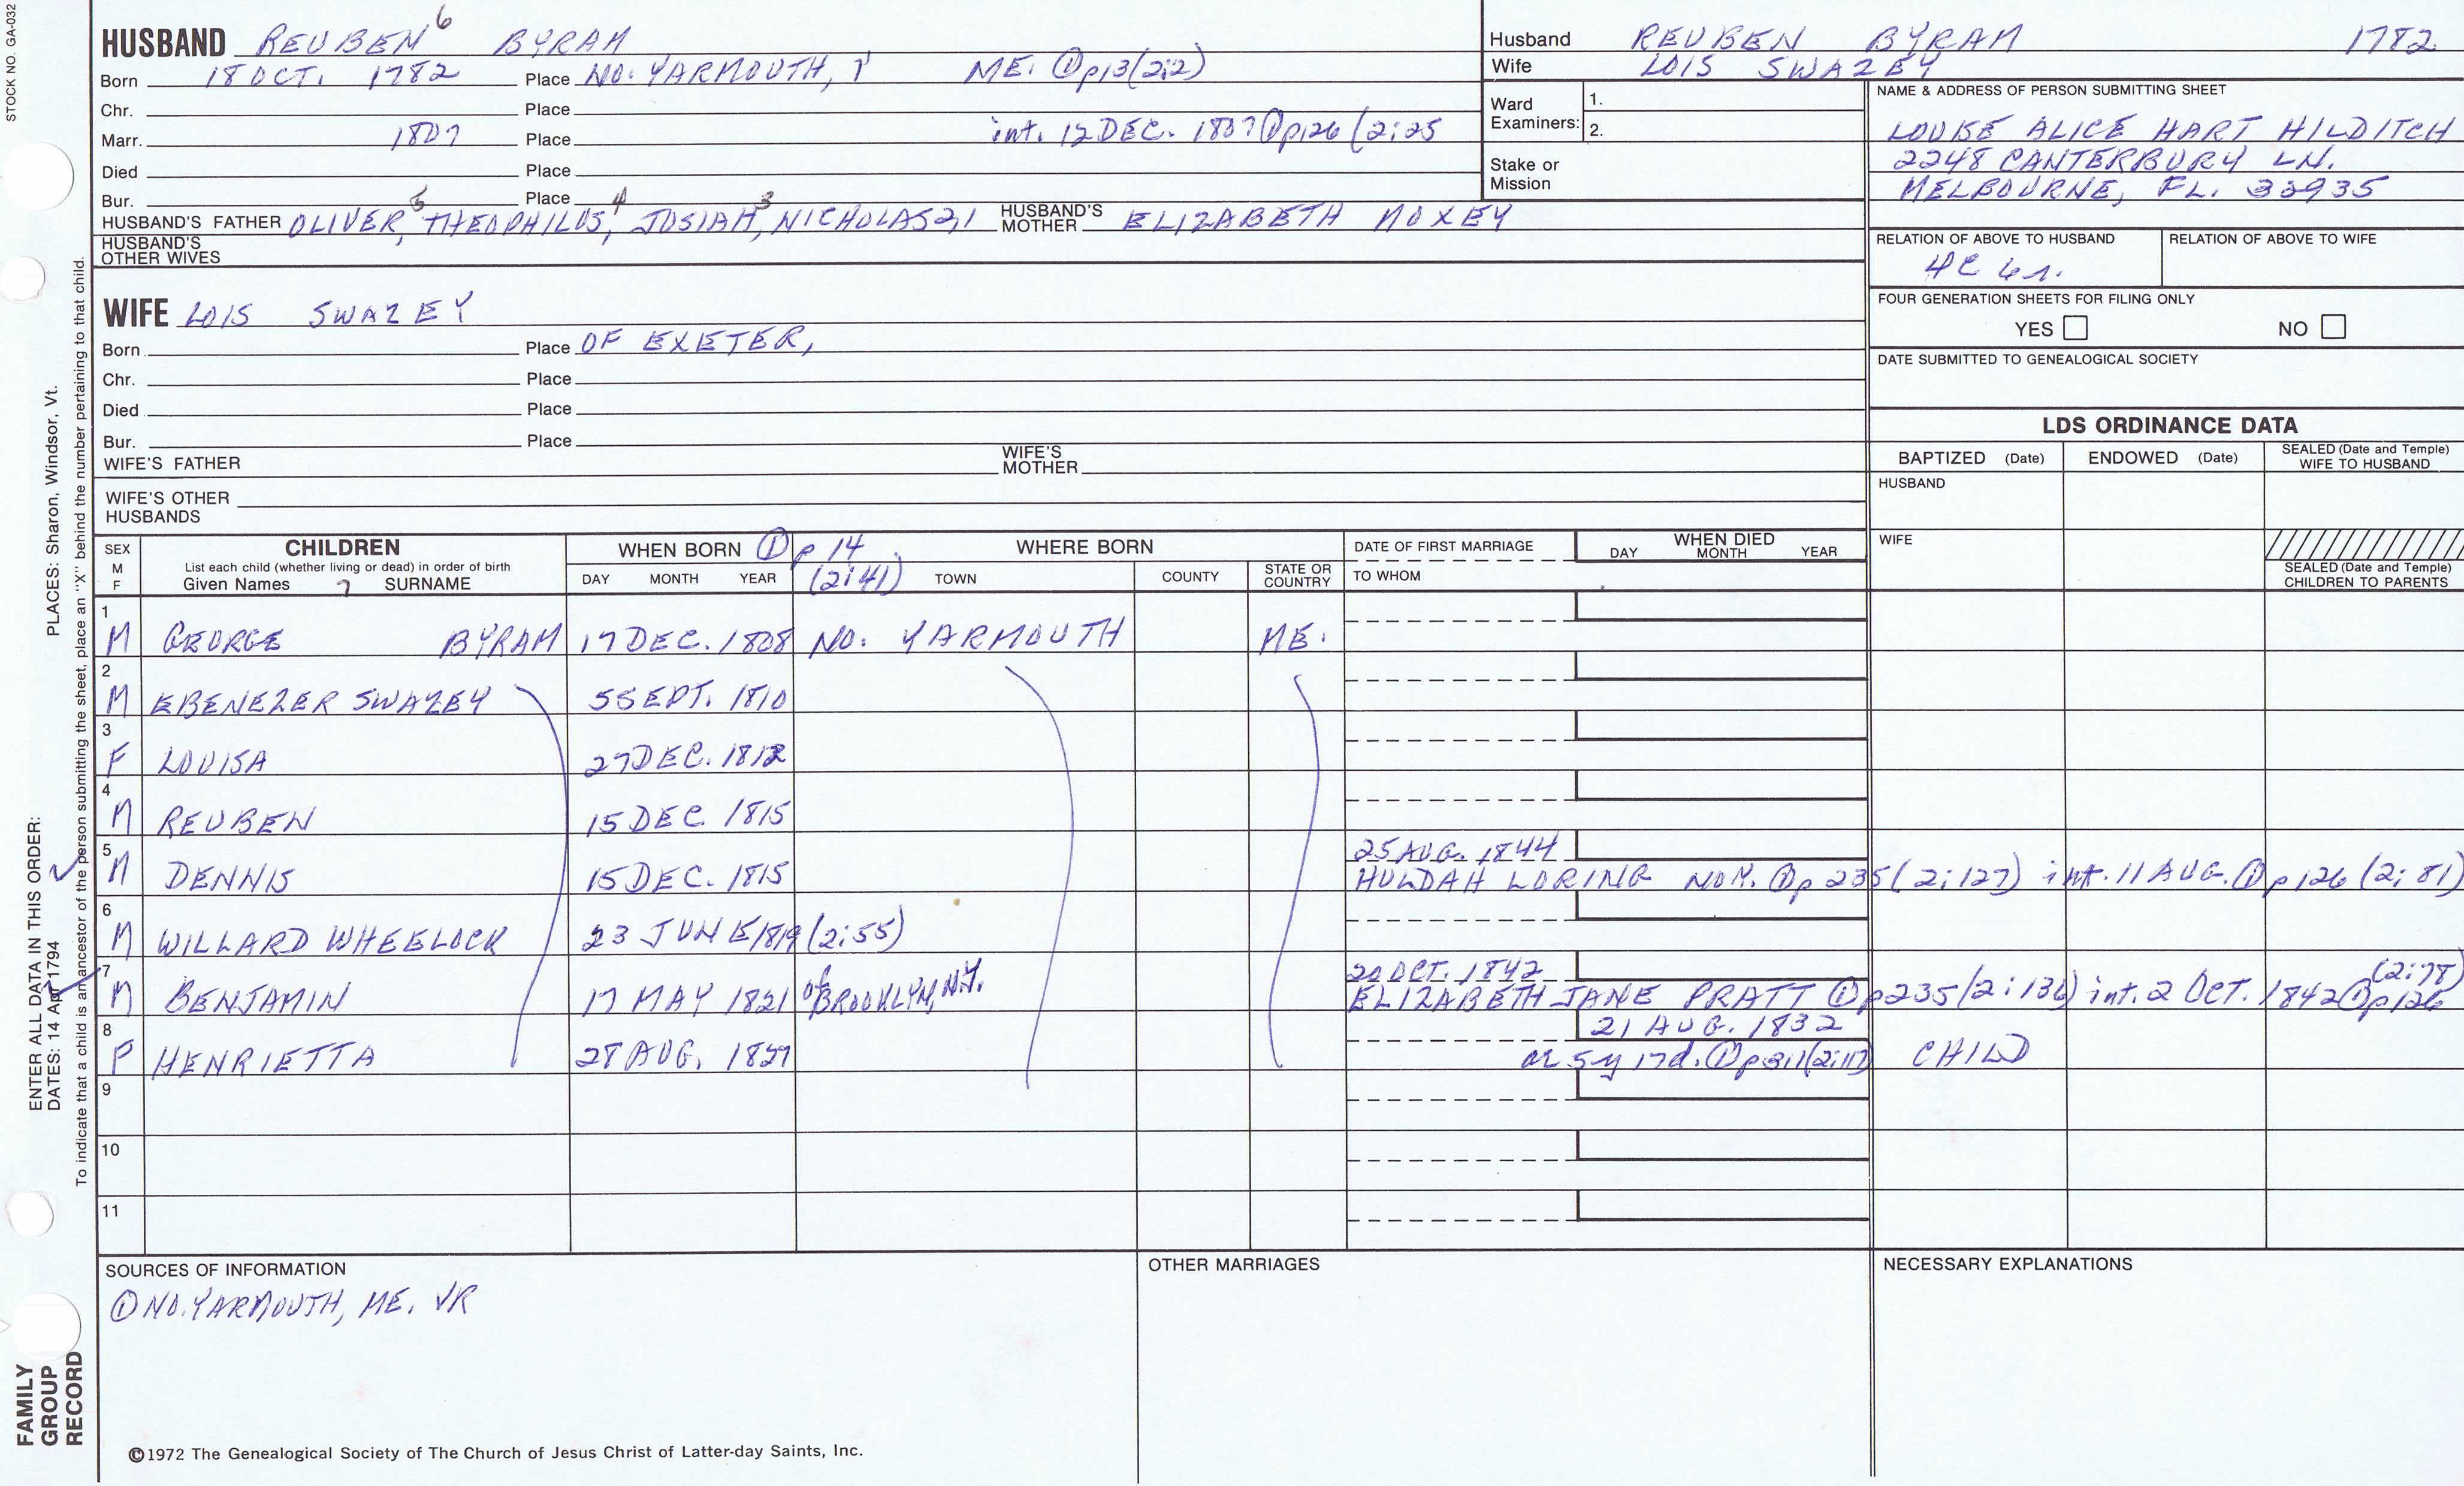 STOCK NO. GA-032
HUSBAND REUBEN 6 BYRAM
Born 18 OCT. 1782 Place NO. YARMOUTH, ME. ① p13(2:2)
Chr. Place
Marr. 1807 Place int. 12 DEC. 1807 ① p126 (2:25
Died Place
Bur. Place
HUSBAND'S FATHER OLIVER 5, THEOPHILUS 4, JOSIAH 3, NICHOLAS 2,1 HUSBAND'S MOTHER ELIZABETH MOXEY
HUSBAND'S OTHER WIVES
WIFE LOIS SWAZEY
Born Place OF EXETER,
Chr. Place
Died Place
Bur. Place
WIFE'S FATHER WIFE'S MOTHER
WIFE'S OTHER HUSBANDS
Husband REUBEN BYRAM 1782
Wife LOIS SWAZEY
Ward Examiners: 1.
2.
Stake or Mission
NAME & ADDRESS OF PERSON SUBMITTING SHEET
LOUISE ALICE HART HILDITCH
2248 CANTERBURY LN.
MELBOURNE, FL. 32935
RELATION OF ABOVE TO HUSBAND RELATION OF ABOVE TO WIFE
4C 6r.
FOUR GENERATION SHEETS FOR FILING ONLY
YES NO
DATE SUBMITTED TO GENEALOGICAL SOCIETY
LDS ORDINANCE DATA
BAPTIZED (Date) ENDOWED (Date) SEALED (Date and Temple) WIFE TO HUSBAND
HUSBAND
WIFE
SEALED (Date and Temple) CHILDREN TO PARENTS
SEX M F CHILDREN List each child (whether living or dead) in order of birth Given Names 7 SURNAME
WHEN BORN ① p 14 (2:41) DAY MONTH YEAR
WHERE BORN TOWN COUNTY STATE OR COUNTRY
DATE OF FIRST MARRIAGE TO WHOM
WHEN DIED DAY MONTH YEAR
1 M GEORGE BYRAM 17 DEC. 1808 NO. YARMOUTH ME.
2 M EBENEZER SWAZEY 5 SEPT. 1810
3 F LOUISA 27 DEC. 1812
4 M REUBEN 15 DEC 1815
5 M DENNIS 15 DEC. 1815 25 AUG. 1844
HULDAH LORING ① p 235 (2:127) int. 11 AUG. ① p126 (2:81)
6 M WILLARD WHEELOCK 23 JUNE 1819 (2:55)
7 M BENJAMIN 17 MAY 1821 of BROOKLYN, N.Y. 20 OCT. 1842
ELIZABETH JANE PRATT ① p235 (2:136) int. 2 OCT. 1842 ① p126 (2:78)
8 F HENRIETTA 28 AUG. 1827 21 AUG. 1832
ae 5y 17d. ① p311 (2:117) CHILD
9
10
11
SOURCES OF INFORMATION
① NO. YARMOUTH, ME. VR
OTHER MARRIAGES
NECESSARY EXPLANATIONS
©1972 The Genealogical Society of The Church of Jesus Christ of Latter-day Saints, Inc.
FAMILY GROUP RECORD
ENTER ALL DATA IN THIS ORDER:
DATES: 14 Apr 1794 PLACES: Sharon, Windsor, Vt.
To indicate that a child is an ancestor of the person submitting the sheet, place an "X" behind the number pertaining to that child.